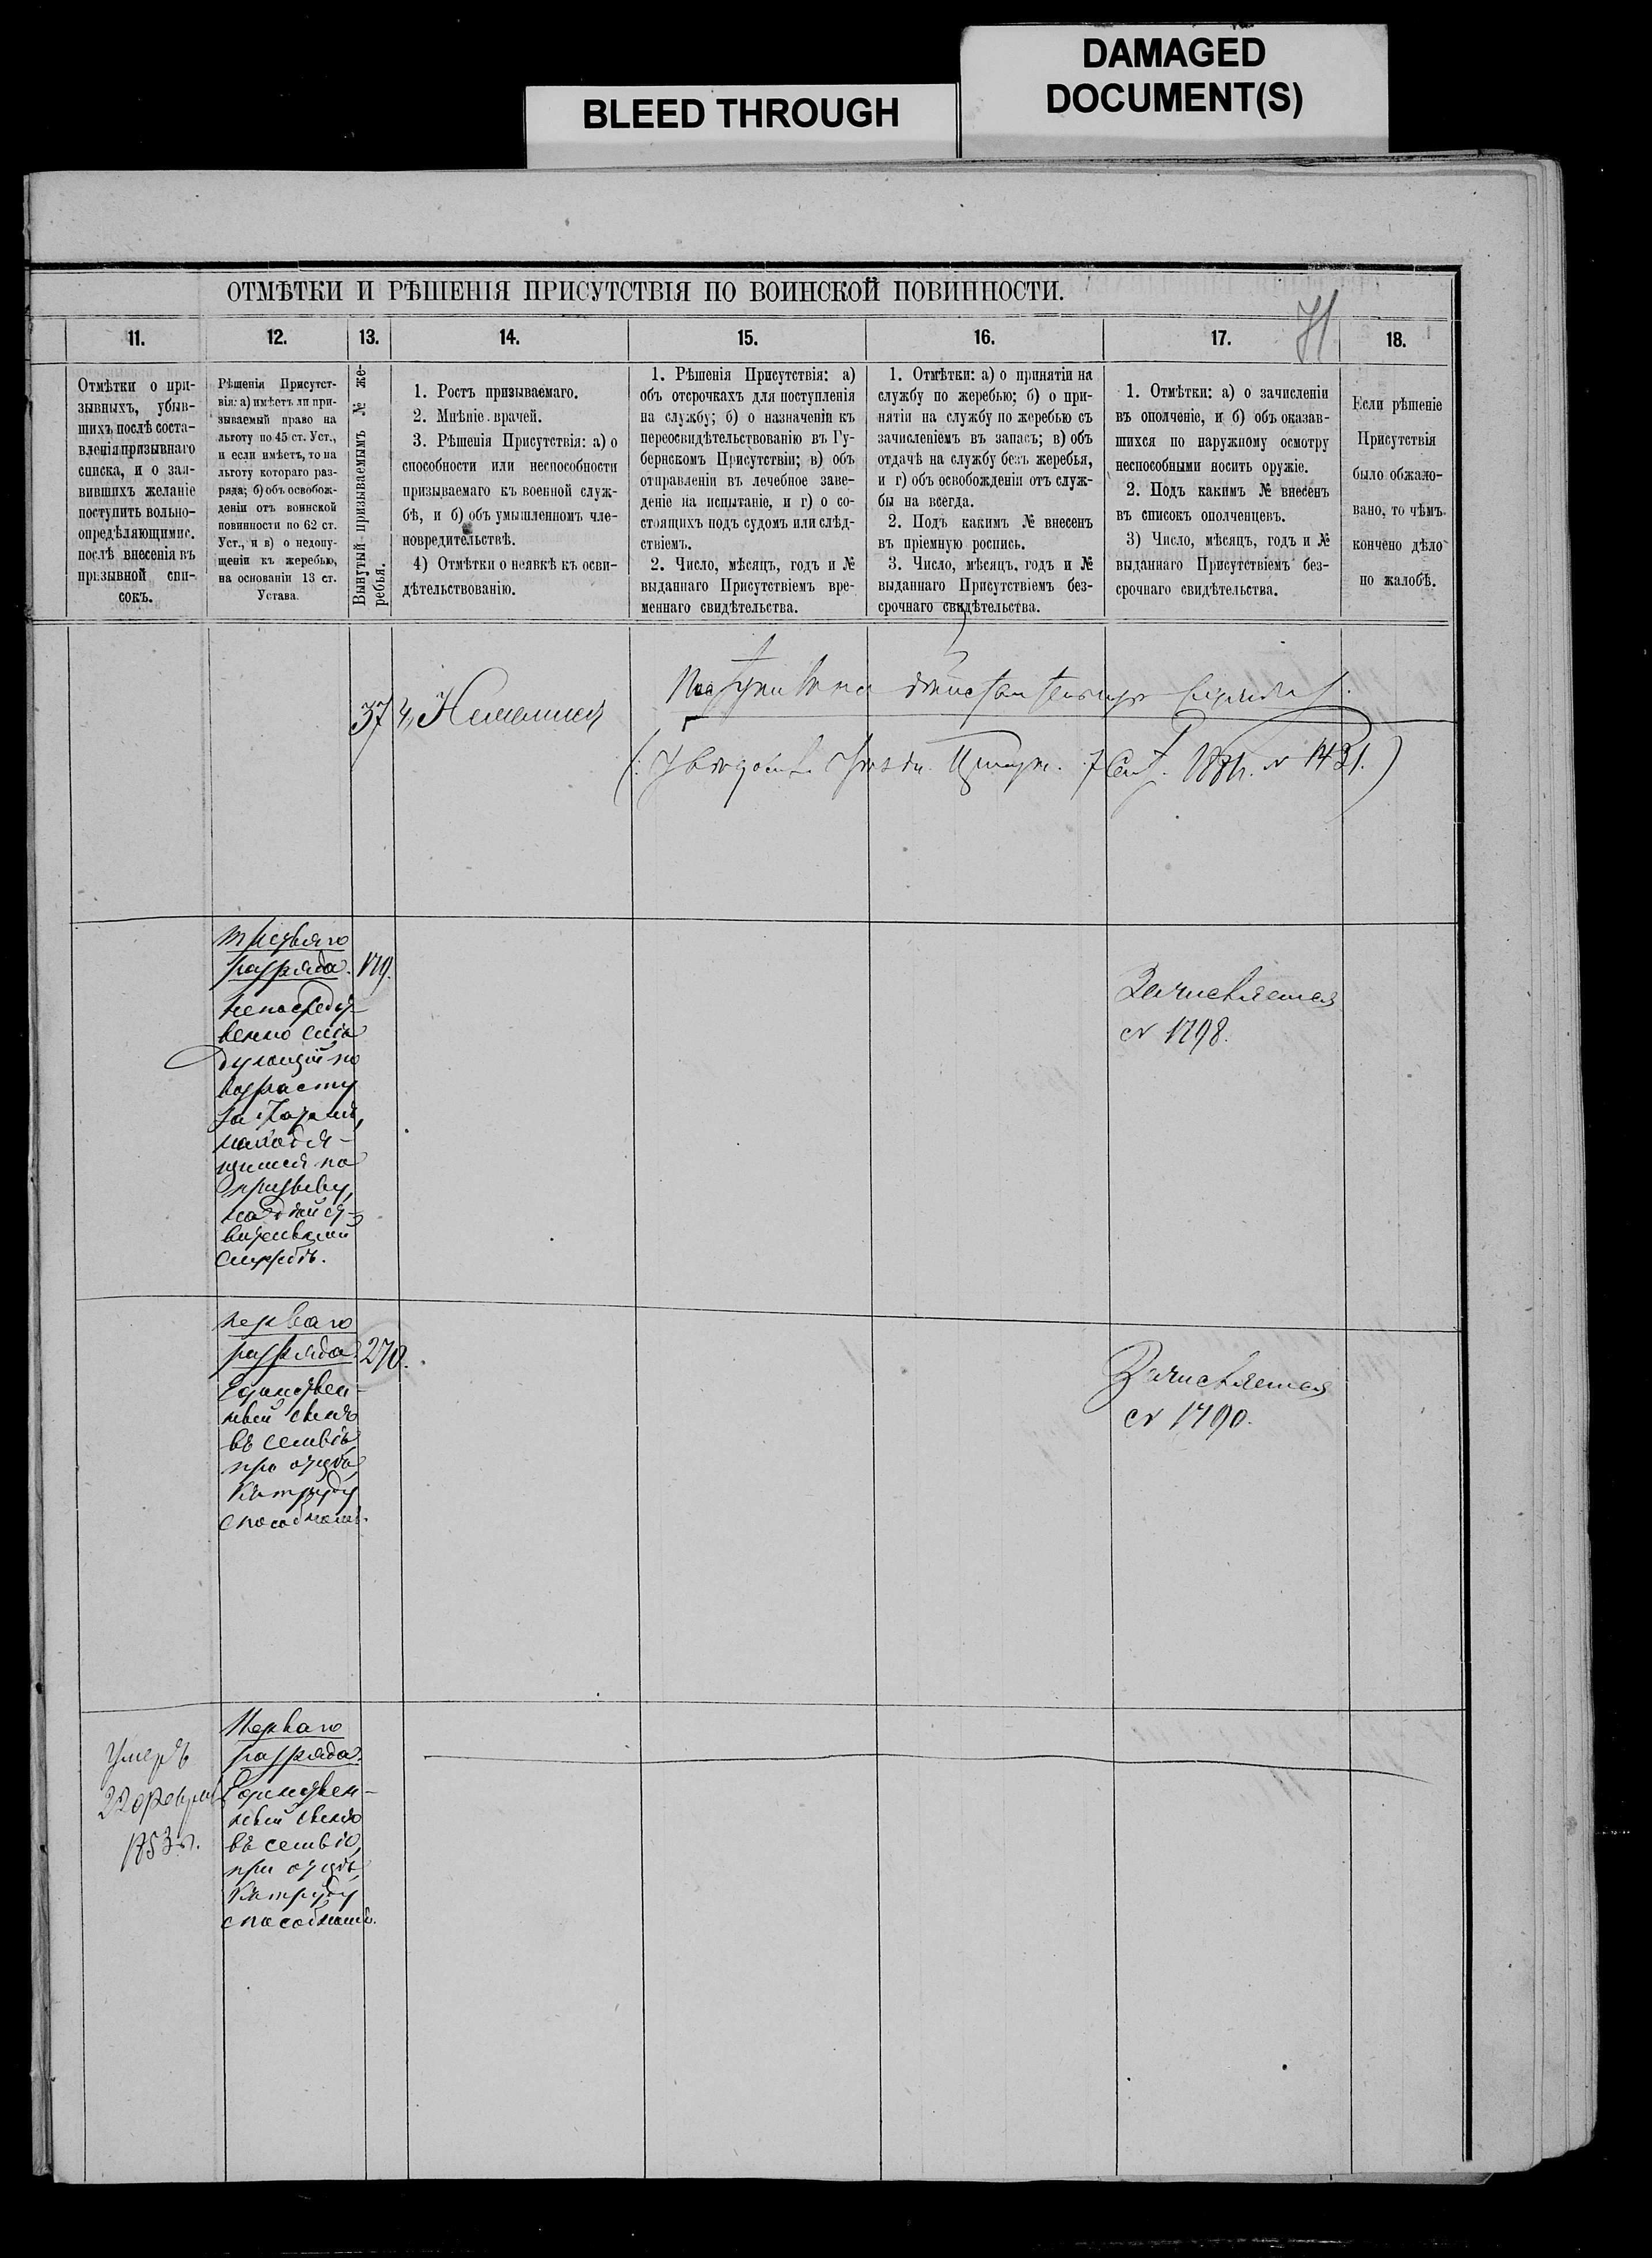 BLEED THROUGH
DAMAGED
DOCUMENT(S)
ОТМѢТКИ И РѢШЕНІЯ ПРИСУТСТВІЯ ПО ВОИНСКОЙ ПОВИННОСТИ.
71
11.
12.
13.
14.
15.
16.
17.
18.
Отмѣтки о при-
зывныхъ, убыв-
шихъ послѣ соста-
вленія призывнаго
списка, и о зая-
вившихъ желаніе
поступить вольно-
опредѣляющимис.
послѣ внесенія въ
призывной спи-
сокъ.
Рѣшенія Присутст-
вія: а) имѣетъ ли при-
зываемый право на
льготу по 45 ст. Уст.,
и если имѣетъ, то на
льготу котораго раз-
ряда; б) объ освобож-
деніи отъ воинской
повинности по 62 ст.
Уст., и в) о недопу-
щеніи къ жеребью,
на основаніи 13 ст.
Устава.
Вынутый призываемымъ № же-
ребья.
1. Ростъ призываемаго.
2. Мнѣніе врачей.
3. Рѣшенія Присутствія: а) о
способности или неспособности
призываемаго къ военной служ-
бѣ, и б) объ умышленномъ чле-
новредительствѣ.
4) Отмѣтки о неявкѣ къ осви-
дѣтельствованію.
1. Рѣшенія Присутствія: а)
объ отсрочкахъ для поступленія
на службу; б) о назначеніи къ
переосвидѣтельствованію въ Гу-
бернскомъ Присутствіи; в) объ
отправленіи въ лечебное заве-
деніе на испытаніе, и г) о со-
стоящихъ подъ судомъ или слѣд-
ствіемъ.
2. Число, мѣсяцъ, годъ и №
выданнаго Присутствіемъ вре-
меннаго свидѣтельства.
1. Отмѣтки: а) о принятіи на
службу по жеребью; б) о при-
нятіи на службу по жеребью съ
зачисленіемъ въ запасъ; в) объ
отдачѣ на службу безъ жеребья,
и г) объ освобожденіи отъ служ-
бы на всегда.
2. Подъ какимъ № внесенъ
въ пріемную роспись.
3. Число, мѣсяцъ, годъ и №
выданнаго Присутствіемъ без-
срочнаго свидѣтельства.
1. Отмѣтки: а) о зачисленіи
въ ополченіе, и б) объ оказав-
шихся по наружному осмотру
неспособными носить оружіе.
2. Подъ какимъ № внесенъ
въ списокъ ополченцевъ.
3) Число, мѣсяцъ, годъ и №
выданнаго Присутствіемъ без-
срочнаго свидѣтельства.
Если рѣшеніе
Присутствія
было обжало-
вано, то чѣмъ
кончено дѣло
по жалобѣ.
37
4, Неявился
Поступилъ на дѣйствительную службу
7 Сент. № 1431.)
третьяго
разряда.
179.
Непосредст-
венно слѣ-
дующій по
возрасту
за братомъ,
находя-
щимся по
призыву,
на дѣйст-
вительной
службѣ.
Зачисляется
№ 1798.
перваго
разряда.
270.
Единствен-
ный сынъ
въ семьѣ
при отцѣ,
къ труду
способномъ.
Зачисляется
№ 1790.
Умеръ
22 февраля
1853 г.
Перваго
разряда.
Единствен-
ный сынъ
въ семьѣ,
при отцѣ,
къ труду
способномъ.